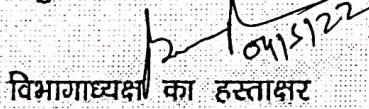 04/5/22
विभागाध्यक्ष का हस्ताक्षर